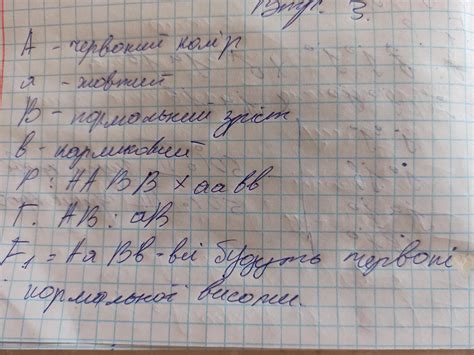 Впр. 3.
А - червоний колір
а - жовтий
В - нормальний зріст
в - карликовий
Р: ААВВ х аавв
Г. АВ: аВ
F₁ = АаВв - всі будуть червоні
нормальної висоти.